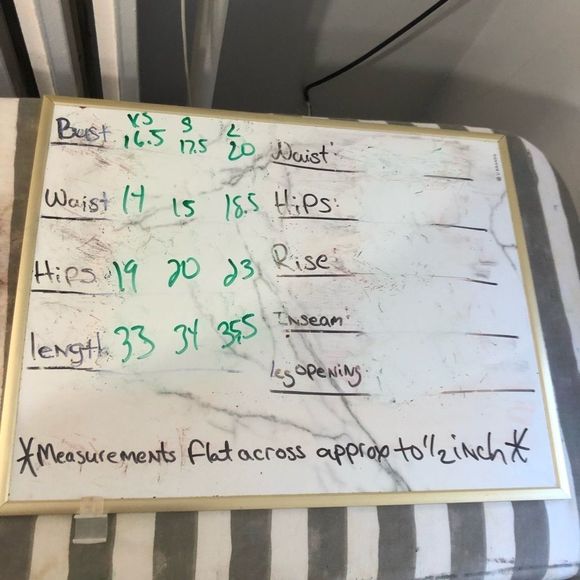 XS S L
Bust 16.5 17.5 20
Waist 14 15 18.5
Hips 19 20 23
length 33 34 35.5
Waist:
Hips:
Rise:
Inseam:
leg opening:
*Measurements flat across approx to 1/2 inch*